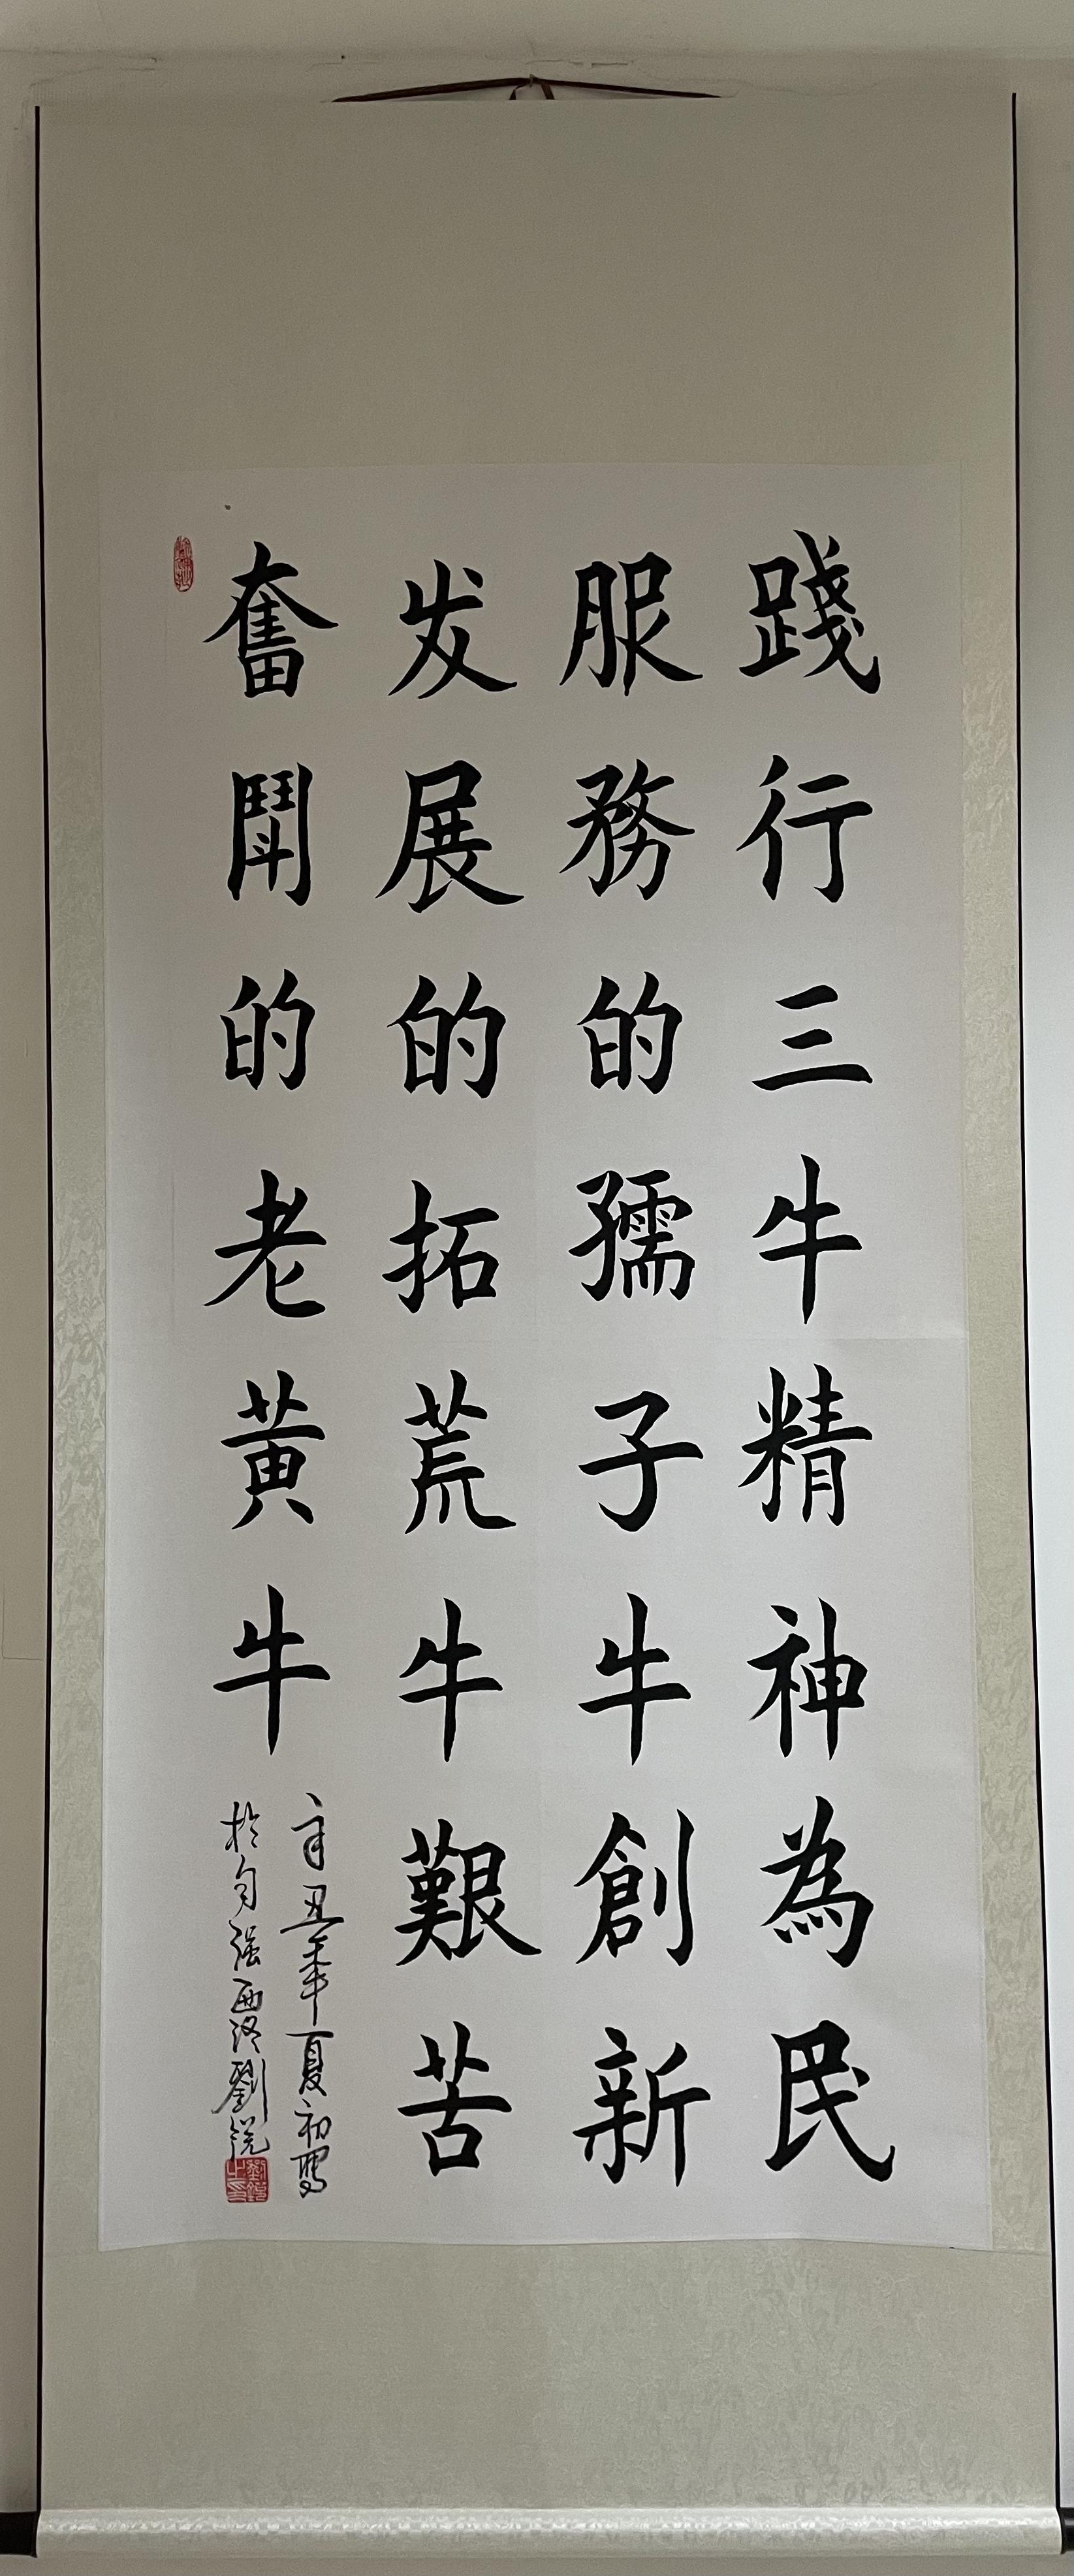 踐行三牛精神為民
服務的孺子牛創新
发展的拓荒牛艱苦
奮鬪的老黄牛
辛丑年夏初寫
於自强西洛劉锐
劉锐之印